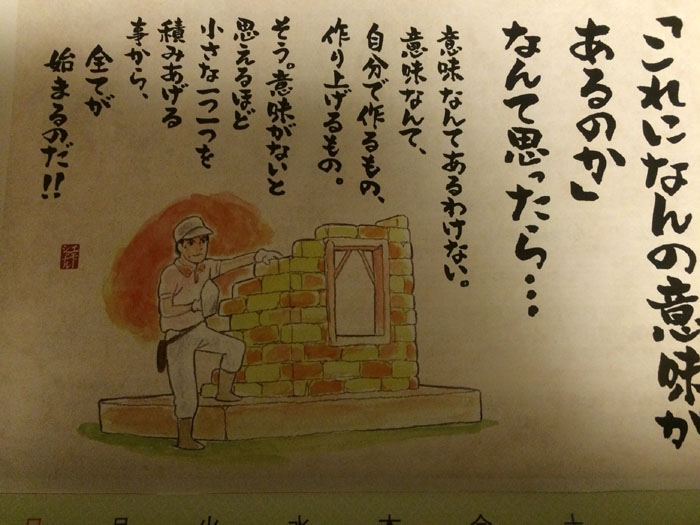 「これになんの意味が
あるのか」
なんて思ったら…
意味なんてあるわけない。
意味なんて、
自分で作るもの、
作り上げるもの。
そう。意味がないと
思えるほど
小さな一つ一つを
積みあげる
事から、
全てが
始まるのだ!!
日 月 火 水 木 金 土